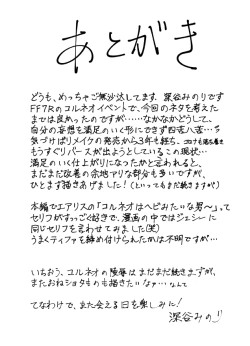 あとがき
どうも、めっちゃご無沙汰してます 深谷みのりです
FF7Rのコルネオイベントで、今回のネタを考えた
までは良かったのですが……なかなかどうして、
自分の妄想を満足のいく形にできず四苦八苦…
気づけばリメイクの発売から3年も経ち、
もうすぐリバースが出ようとしているこの現状…
満足のいく仕上がりになったかと言われると、
まだまだ改善の余地アリな部分も多いですが、
ひとまず描きあげました！(といってもまだ続きますが)
本編でエアリスの「コルネオはヘビみたいな男〜」って
セリフがすっごく好きで、漫画の中ではジェシーに
同じセリフを言わせてみました(笑)
うまくティファを締め付けられたかは不明ですが…
いちおう、コルネオの陵辱はまだまだ続きますが、
またおねショタものも描きたいなァ…なんて
てなわけで、また会える日を楽しみに！
深谷みのり